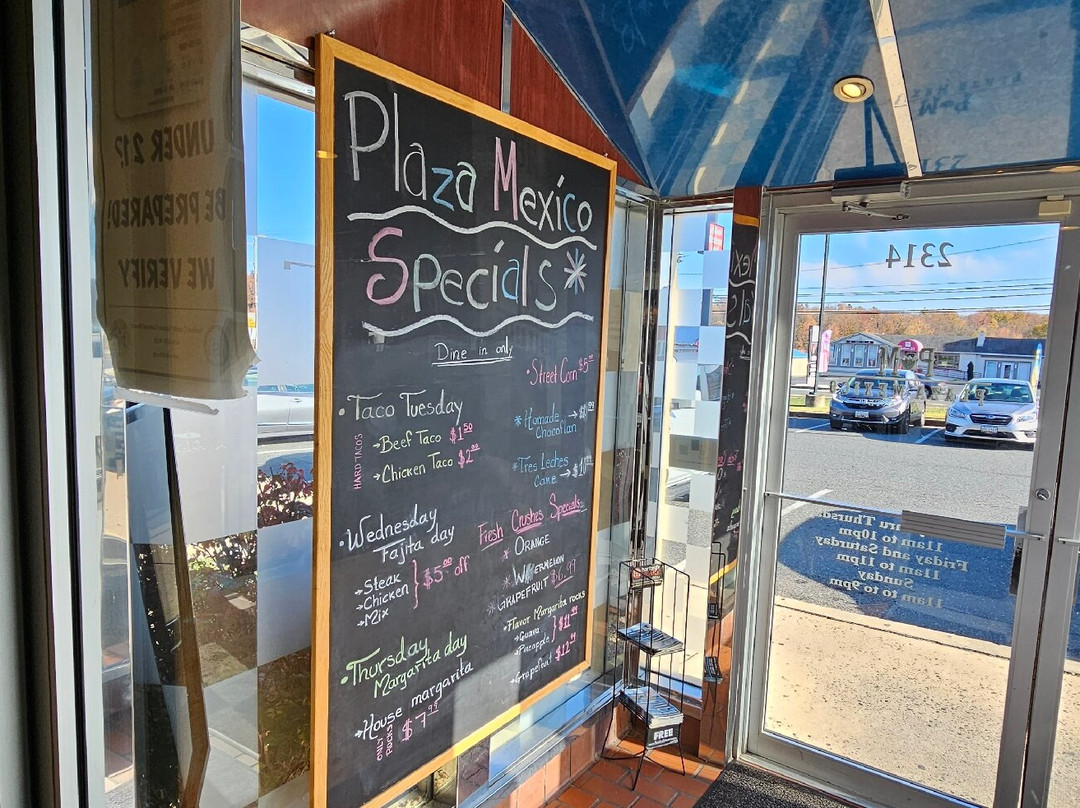 UNDER 21?
BE PREPARED!
WE VERIFY
Plaza Mexico
Specials*
Dine in only
• Taco Tuesday
HARD TACOS
→ Beef Taco $1.50
→ Chicken Taco $2.00
• Wednesday
Fajita day
→ Steak
→ Chicken
→ Mix
} $5.00 off
• Thursday
Margarita day
→ House margarita
ONLY ROCKS!
$7.99
• Street Corn
* Homade
Chocoflan
* Tres Leches
Cake
Fresh Crushes Specials
* ORANGE
* WATERMELON
* GRAPEFRUIT $6.99
• Flavor Margarita rocks
→ Guava
→ Pineapple
→ Grapefruit
2314
Thursd
11am to 10pm
Friday and Saturday
11am to 11pm
Sunday
11am to 9pm
FREE